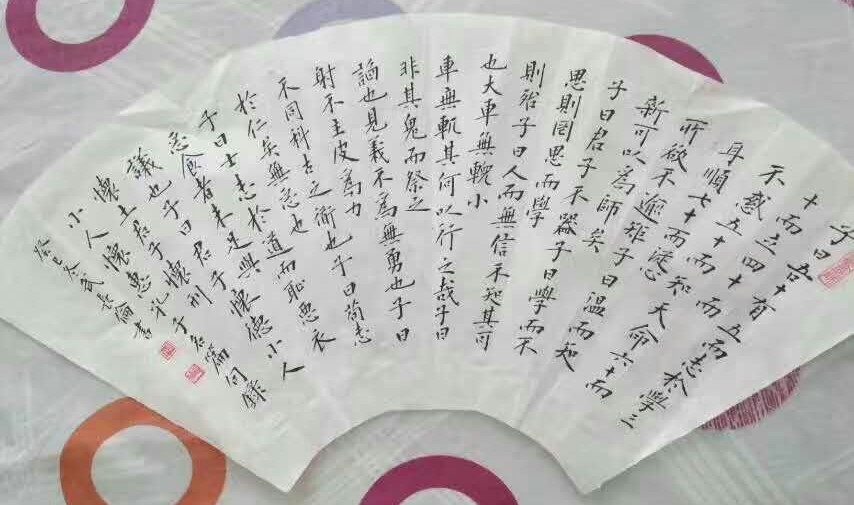 子曰吾十有五而志於學三
十而立四十而
不惑五十而知天命六十而
耳順七十而從心
所欲不逾矩子曰溫而知
新可以為師矣
子曰君子不器子曰學而不
思則罔思而學
則殆子曰人而無信不知其可
也大車無輗小
車無軏其何以行之哉子曰
非其鬼而祭之
諂也見義不為無勇也子曰
射不主皮為力
不同科古之術也子曰苟志
於仁矣無惡也
子曰士志於道而恥惡衣
惡食者未足與
議也子曰君子懷德小人
懷土君子懷刑
小人懷惠孔子名篇句錄
癸巳冬武長倫書